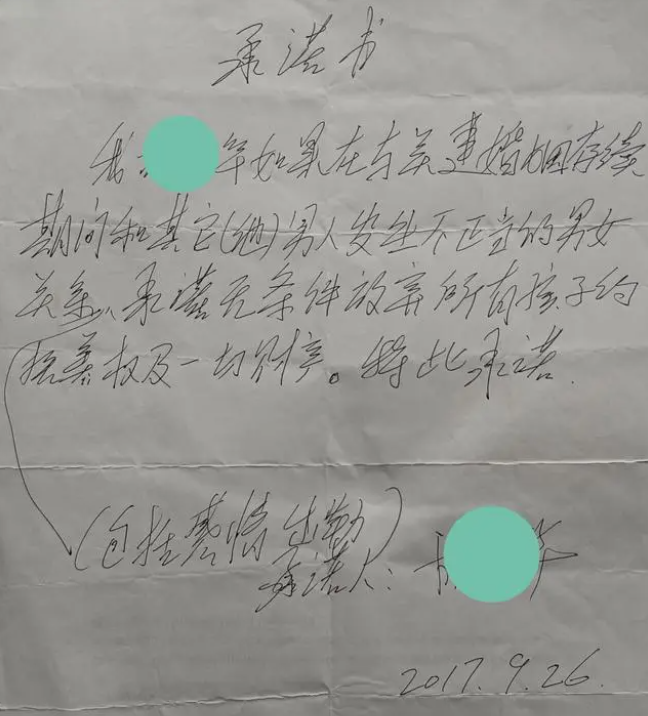 承诺书
我如果在与关建婚姻存续
期间和其它(他)男人发生不正当的男女
关系，承诺无条件放弃所有孩子的
抚养权及一切财产。特此承诺.
(包括感情出轨)
承诺人:
2017.9.26.